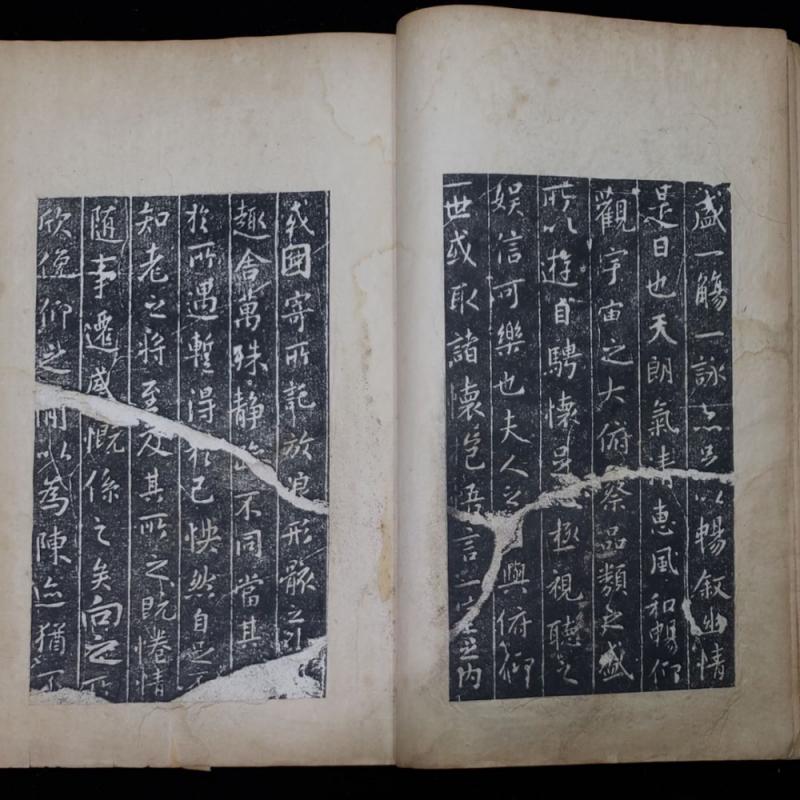 盛一觴一詠亦足以暢敘幽情
是日也天朗氣清惠風和暢仰
觀宇宙之大俯察品類之盛
所以遊目騁懷足極視聽之
娛信可樂也夫人之與俯仰
一世或取諸懷抱悟言一室之內
或因寄所託放浪形骸之外
趣舍萬殊静躁不同當其
於所遇暫得於己怏然自足
知老之將至及其所之既惓情
随事遷感慨係之矣向之所
欣俛仰之間以為陳迹猶不